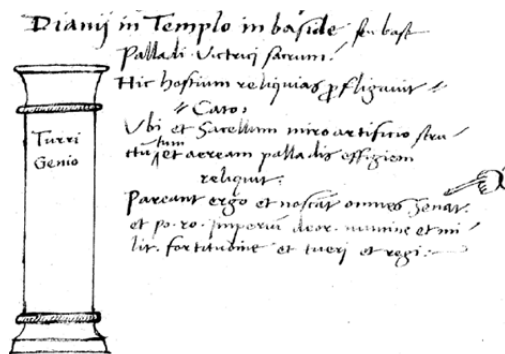 Dianij in Templo in baside seu bast
Palladi Victrici sacrum.
Hic hostium reliquias profligavit
Cato,
Ubi et Sacellum miro artificio stru-
ctu tum et aeream palladis effigiem
reliquit.
Pareant ergo et noscãt omnes Senat.
et po. ro. Imperiũ deor. numine et mi-
lit. fortitudine et tueri et regi.
Turri
Genio